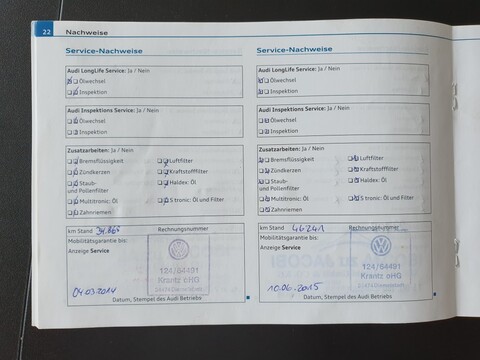 22 Nachweise
Service-Nachweise
Audi LongLife Service: Ja / Nein
Ölwechsel
Inspektion
Audi Inspektions Service: Ja / Nein
Ölwechsel
Inspektion
Zusatzarbeiten: Ja / Nein
Bremsflüssigkeit Luftfilter
Zündkerzen Kraftstofffilter
Staub- Haldex: Öl
und Pollenfilter
Multitronic: Öl S tronic: Öl und Filter
Zahnriemen
km Stand Rechnungsnummer
Mobilitätsgarantie bis:
Anzeige Service
124/84491
Krantz oHG
04.03.2014
Datum, Stempel des Audi Betriebs
Service-Nachweise
Audi LongLife Service: Ja / Nein
Ölwechsel
Inspektion
Audi Inspektions Service: Ja / Nein
Ölwechsel
Inspektion
Zusatzarbeiten: Ja / Nein
Bremsflüssigkeit Luftfilter
Zündkerzen Kraftstofffilter
Staub- Haldex: Öl
und Pollenfilter
Multitronic: Öl S tronic: Öl und Filter
Zahnriemen
km Stand 46241 Rechnungsnummer
Mobilitätsgarantie bis:
Anzeige Service
124/84491
Krantz oHG
10.06.2015
Datum, Stempel des Audi Betriebs